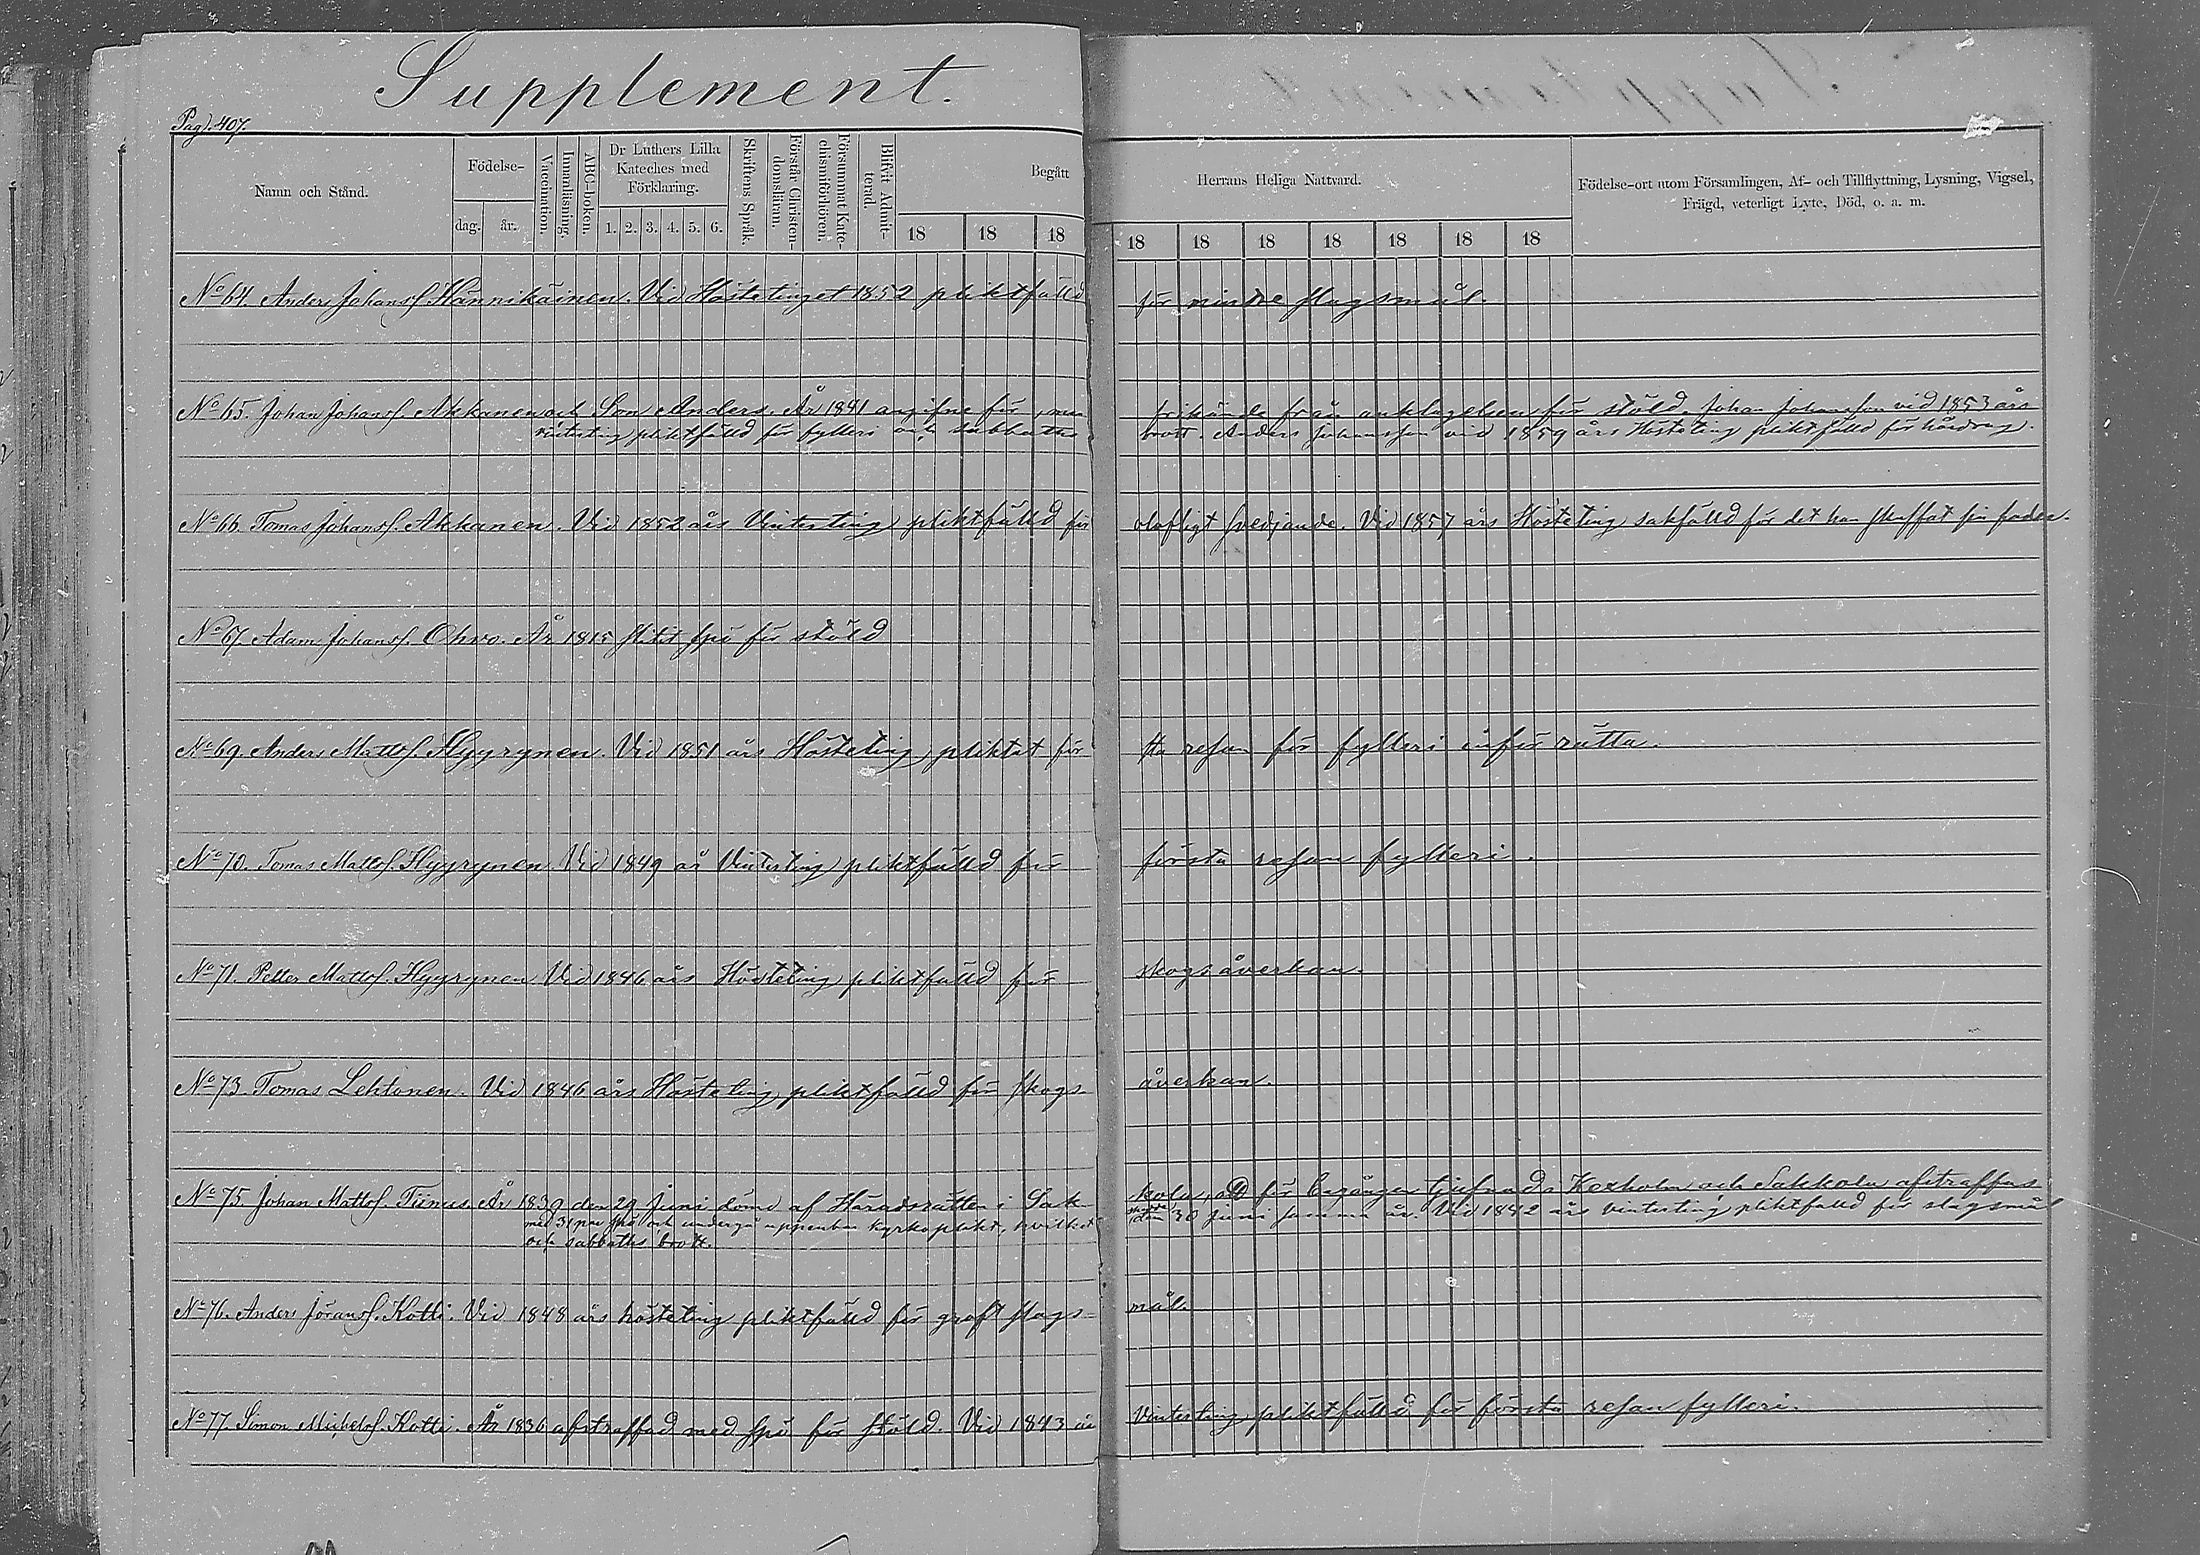 Supplement.
Pag. 407.
Namn och Stånd.
Födelse-
dag.
år.
Vaccination.
Innanläsning.
ABC-boken.
Dr Luthers Lilla
Kateches med
Förklaring.
1. 2. 3. 4. 5. 6.
Skriftens Språk.
Förstår Christen-
domsläran.
Försummat Kate-
chismiförhören.
Blifvit Admit-
terad
Begått
18 18 18
Herrans Heliga Nattvard.
18 18 18 18 18 18 18
Födelse-ort utom Församlingen, Af- och Tillflyttning, Lysning, Vigsel,
Frägd, veterligt Lyte, Död, o. a. m.
No 64. Anders Johanss. Hännikäinen. Vid Hösttinget 1852 pliktfälld för mindre slagsmål.
No 65. Johan Johanss. Akkanen och Son Anders. År 1841 angifne för, men frikände från anklagelsen för stöld. Johan Johansson vid 1853 års
vinterting pliktfälld för fylleri och sabbaths brott. Anders Johansson vid 1859 års Hösteting pliktfälld för hårdrag.
No 66. Tomas Johanss. Akkanen. Vid 1852 års Vinterting pliktfälld för olofligt svedjande. Vid 1857 års Hösteting sakfälld för det han skuffat sin fader.
No 67. Adam Johanss. Ohvo. År 1815 slitit spö för stöld
No 69. Anders Matts. Hyyrynen. Vid 1851 års Hösteting pliktat för 1sta resan för fylleri inför rätta.
No 70. Tomas Matts. Hyyrynen. Vid 1849 år Vinterting pliktfälld för första resan fylleri.
No 71. Petter Matts. Hyyrynen. Vid 1846 års Hösteting pliktfälld för skogsåverkan.
No 73. Tomas Lehtonen. Vid 1846 års Hösteting pliktfälld för skogs- åverkan.
No 75. Johan Matts. Tiinus. År 1839 den 29 Juni dömd af Häradsrätten i Sak- kola, att för begången tjufnad i Kexholm och Sakkola afstraffas
med 31 par spö och undergå uppenbar kyrkoplikt, hvilket skedde den 30 Juni samma år. Vid 1842 års vinterting pliktfälld för slagsmål
och sabbaths brott.
No 76. Anders Jöranss. Kotti. Vid 1848 års hösteting pliktfälld för groft slags- mål.
No 77. Simon Michels. Kotti. År 1836 afstraffad med spö för stöld. Vid 1843 års Vinterting pliktfälld för första resan fylleri.